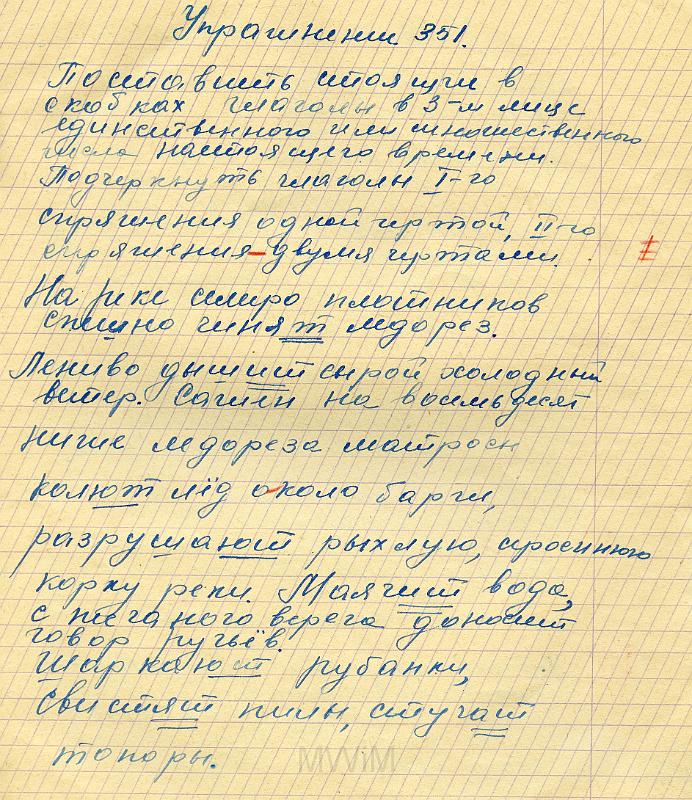 Упражнении 351.
Поставить стоящии в
скобках глаголы в 3-м лице
единственного или множественного
числа настоящего времени.
Подчеркнуть глаголы I-го
спряжения одной чертой, II-го
спряжения двумя чертами.
На реке семеро плотников
спешно чинят ледорез.
Лениво дышит сырой холодный
ветер. Сажен на восемьдесят
ниже ледореза матросы
колют лёд около баржи,
разрушают рыхлую,
корку реки. Маячит вода,
с песчаного берега доносит
говор ручьёв.
Шаркают рубанки,
Свистят пилы, стучат
топоры.
MWiM